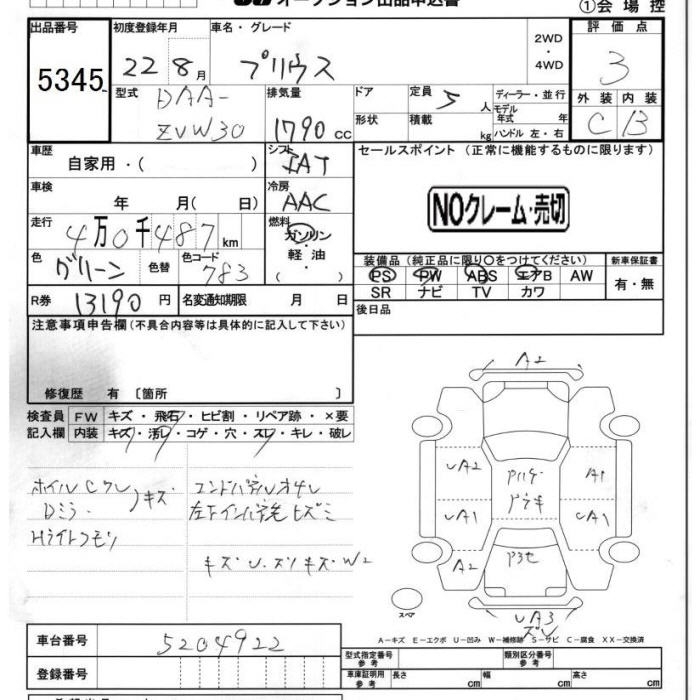 オークション出品申込書
①会場控
出品番号 初度登録年月 車名・グレード 2WD・4WD 評価点
5345 22 8月 プリウス 3
型式 DAA-ZVW30 排気量 1790 cc ドア 形状 定員 5 人 積載 kg ディーラー・並行 モデル年式 年 ハンドル 左・右 外装 内装
C B
車歴 自家用・( ) シフト IAT セールスポイント (正常に機能するものに限ります)
車検 年 月( 日) 冷房 AAC
NOクレーム・売切
走行 4万0千487km 燃料 ガソリン・軽油・( )
色 グリーン 色替 色コード 783
装備品 (純正品に限り○をつけてください) 新車保証書
PS PW ABS エアB AW 有・無
SR ナビ TV カワ
R券 13190円 名変通知期限 月 日
後日品
注意事項申告欄(不具合内容等は具体的に記入して下さい)
修復歴 有 〔箇所 〕
検査員 FW キズ・飛石・ヒビ割・リペア跡・×要
記入欄 内装 キズ・汚レ・コゲ・穴・スレ・キレ・破レ
ホイルCクレ キズ
Dミラー
Hライトクモリ
エンドパネルオサレ
左下インパネ先ヒズミ
キズ・U・スリキズ・W2
A2
UA2 A1
UA1 UA1
A2
UA3
スペア
A－キズ E－エクボ U－凹み W－補修跡 S－サビ C－腐食 XX－交換済
車台番号 5204922
登録番号
型式指定番号 参考 類別区分番号 参考
車庫証明用 参考 長さ cm 幅 cm 高さ cm